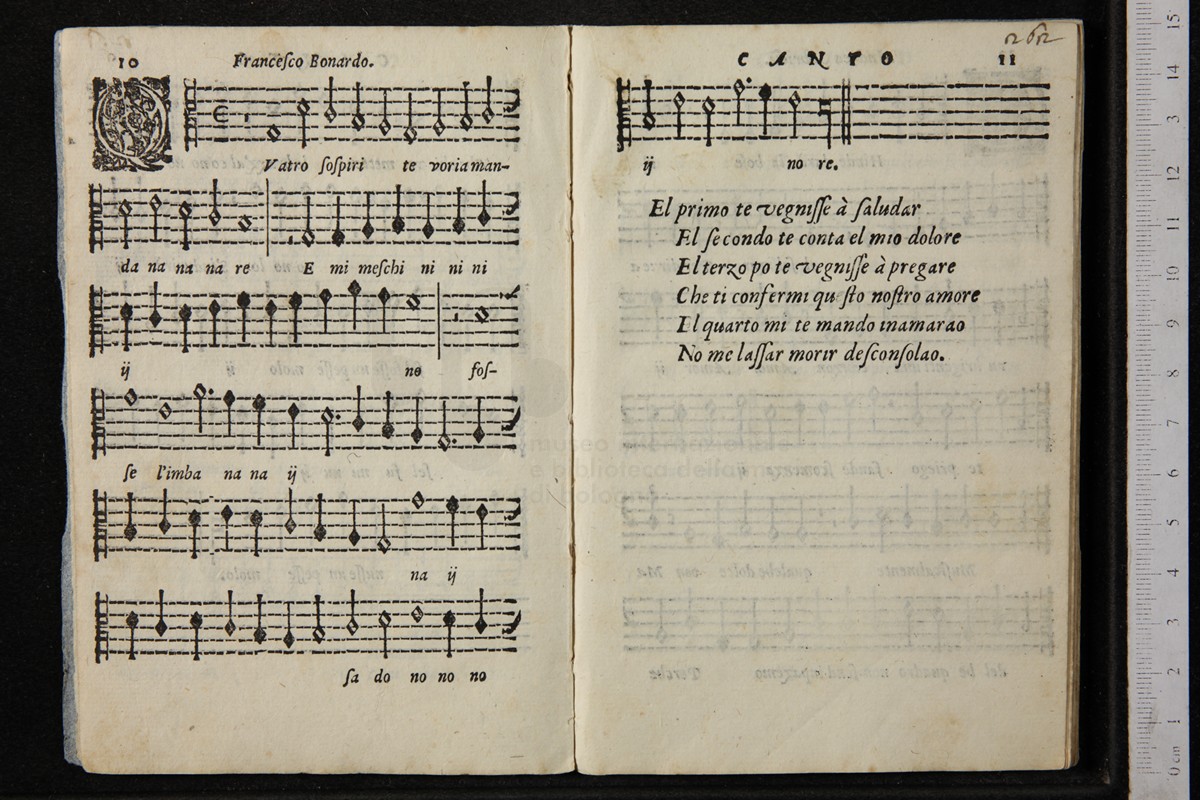 10 Francesco Bonardo.
QVatro sospiri te voria man-
da na na na re E mi meschi ni ni ni
ij no fos-
se l'imba na na ij
na ij
sa do no no no
CANTO 11
ij no re.
El primo te vegnisse à saludar
El secondo te conta el mio dolore
El terzo po te vegnisse à pregare
Che ti confermi qu sto nostro amore
El quarto mi te mando inamarao
No me lassar morir desconsolao.
museo internazionale
e biblioteca della musica
di bologna